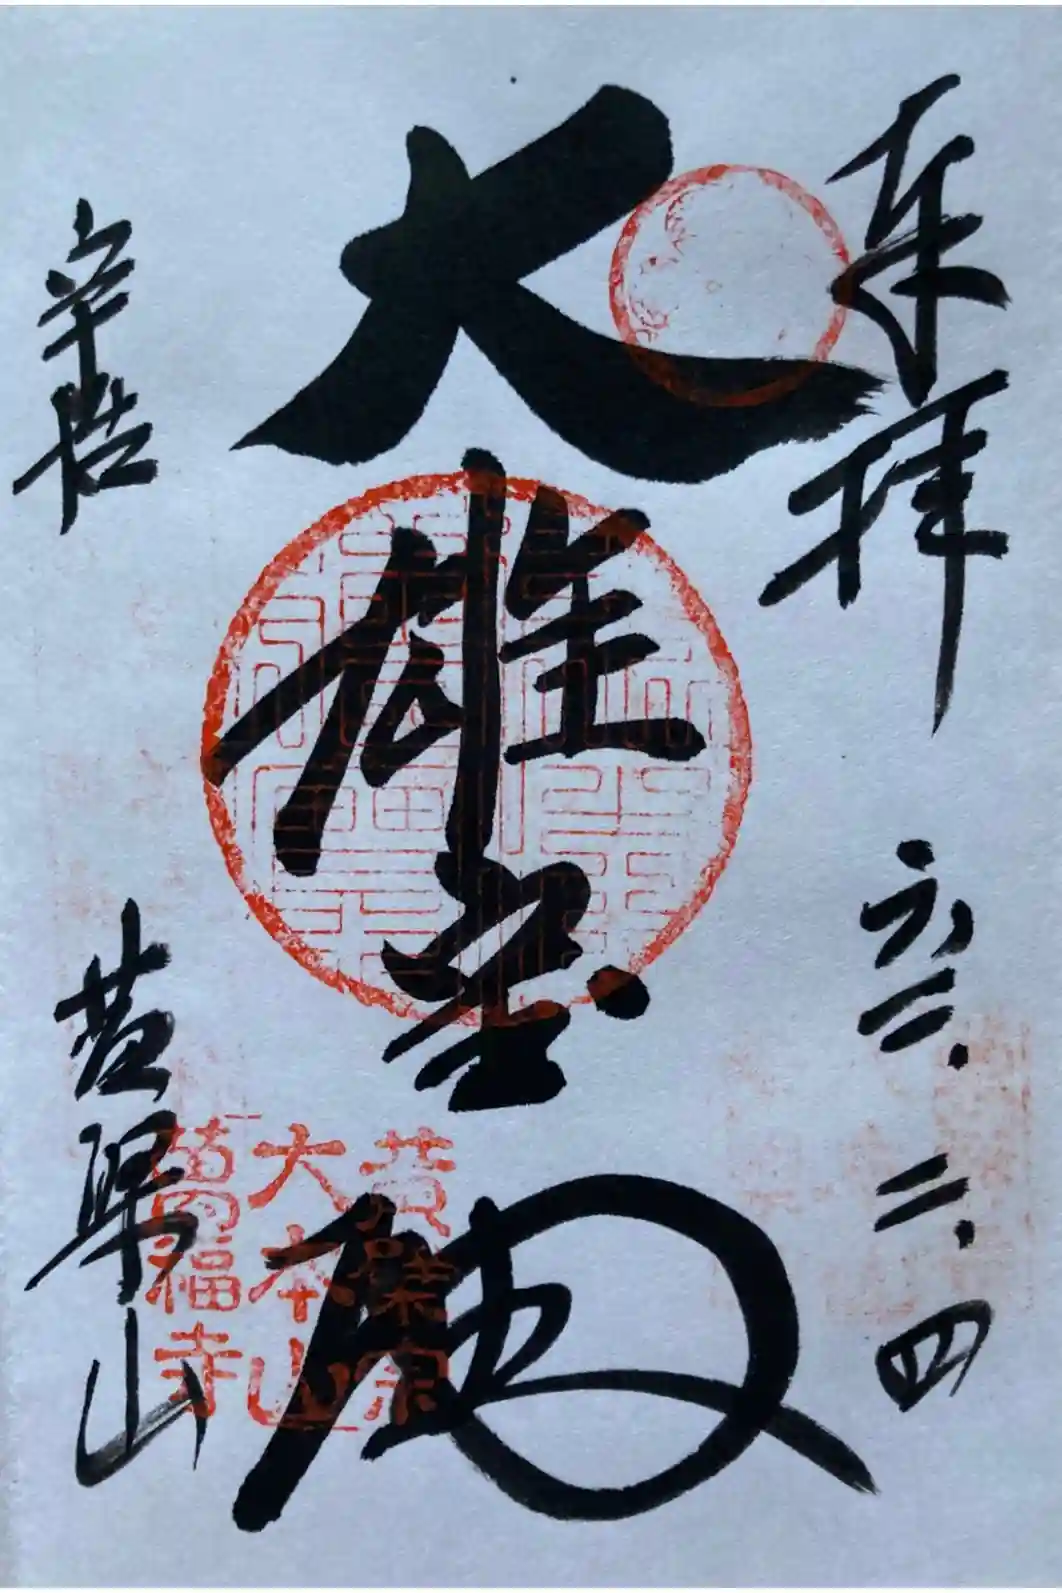 奉拝
六二.二.四
大雄宝殿
黄檗山
黄檗宗
大本山
萬福寺